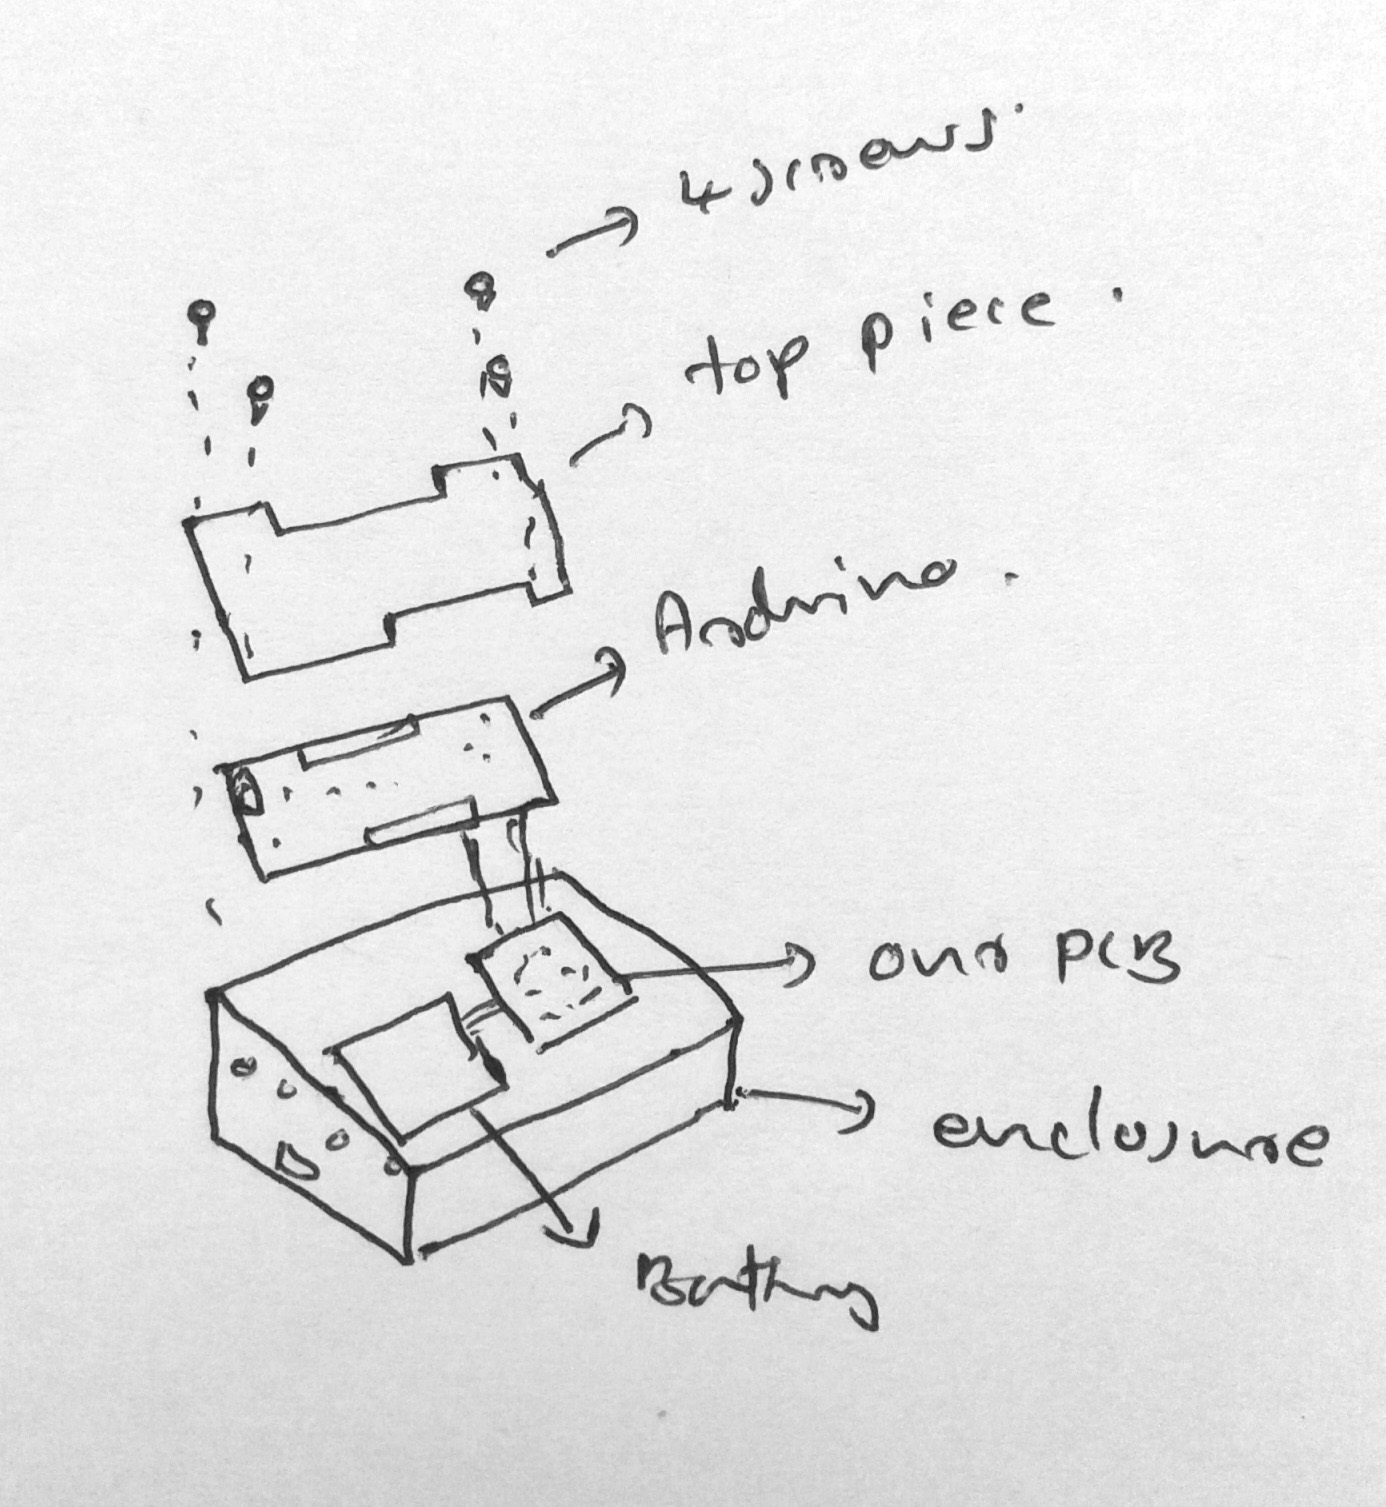 4 screws.
top piece.
Arduino.
our PCB
enclosure
Battery